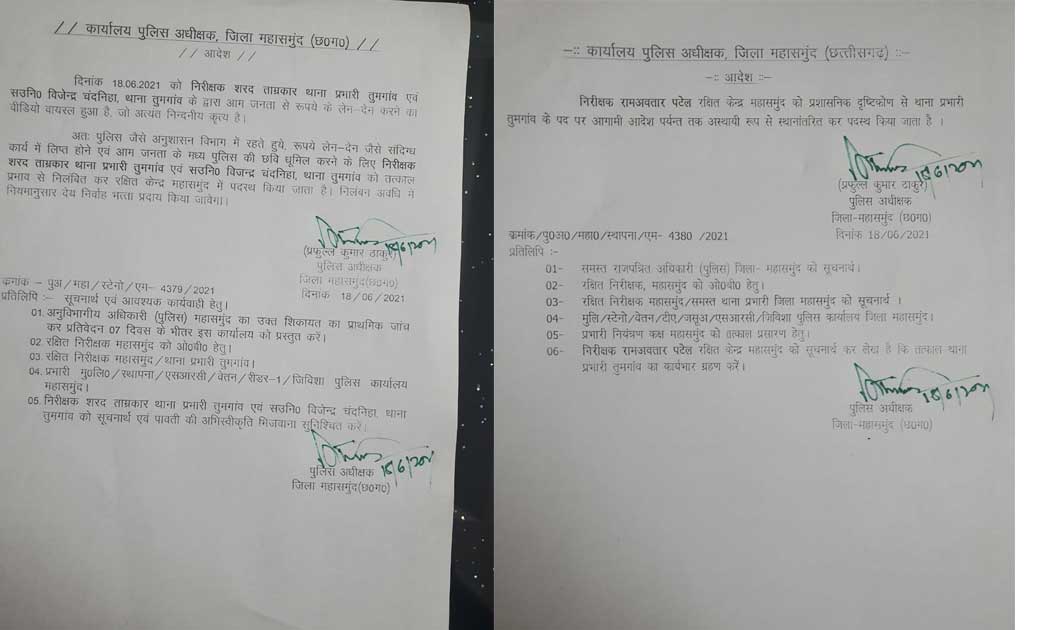 // कार्यालय पुलिस अधीक्षक, जिला महासमुंद (छ0ग0) //
// आदेश //
दिनांक 18.06.2021 को निरीक्षक शरद ताम्रकार थाना प्रभारी तुमगांव एवं
सउनि0 विजेन्द्र चंदनिहा, थाना तुमगांव के द्वारा आम जनता से रूपये के लेन-देन करने का
वीडियो वायरल हुआ है, जो अत्यंत निन्दनीय कृत्य है।
अतः पुलिस जैसे अनुशासन विभाग में रहते हुये, रूपये लेन-देन जैसे संदिग्ध
कार्य में लिप्त होने एवं आम जनता के मध्य पुलिस की छवि धूमिल करने के लिए निरीक्षक
शरद ताम्रकार थाना प्रभारी तुमगांव एवं सउनि0 विजन्द्र चंदनिहा, थाना तुमगांव को तत्काल
प्रभाव से निलंबित कर रक्षित केन्द्र महासमुन्द में पदस्थ किया जाता है। निलंबन अवधि में
नियमानुसार देय निर्वाह भत्ता प्रदाय किया जावेगा।
18/6/2021
(प्रफुल्ल कुमार ठाकुर)
पुलिस अधीक्षक
जिला महासमुंद(छ0ग0)
क्रमांक – पुअ/महा/स्टेनो/एम- 4379/2021
दिनांक 18/06/2021
प्रतिलिपि :– सूचनार्थ एवं आवश्यक कार्यवाही हेतु।
01. अनुविभागीय अधिकारी (पुलिस) महासमुंद का उक्त शिकायत का प्राथमिक जांच
कर प्रतिवेदन 07 दिवस के भीतर इस कार्यालय को प्रस्तुत करें।
02. रक्षित निरीक्षक महासमुंद को ओ0बी0 हेतु।
03. रक्षित निरीक्षक महासमुंद/थाना प्रभारी तुमगांव।
04. प्रभारी मु0लि0/स्थापना/एसआरसी/वेतन/रीडर-1/जिविशा पुलिस कार्यालय
महासमुंद।
05. निरीक्षक शरद ताम्रकार थाना प्रभारी तुमगांव एवं सउनि0 विजेन्द्र चंदनिहा, थाना
तुमगांव को सूचनार्थ एवं पावती की अभिस्वीकृति भिजवाना सुनिश्चित करें।
18/6/2021
पुलिस अधीक्षक
जिला महासमुंद(छ0ग0)
-:: कार्यालय पुलिस अधीक्षक, जिला महासमुंद (छत्तीसगढ़) ::-
-:: आदेश ::-
निरीक्षक रामअवतार पटेल रक्षित केन्द्र महासमुंद को प्रशासनिक दृष्टिकोण से थाना प्रभारी
तुमगांव के पद पर आगामी आदेश पर्यन्त तक अस्थायी रूप से स्थानांतरित कर पदस्थ किया जाता है ।
18/6/2021
(प्रफुल्ल कुमार ठाकुर)
पुलिस अधीक्षक
जिला-महासमुंद (छ0ग0)
क्रमांक/पु0अ0/महा0/स्थापना/एम- 4380 /2021
दिनांक 18/06/2021
प्रतिलिपि :-
01- समस्त राजपत्रित अधिकारी (पुलिस) जिला- महासमुंद को सूचनार्थ।
02- रक्षित निरीक्षक, महासमुंद को ओ0बी0 हेतु।
03- रक्षित निरीक्षक, महासमुंद/समस्त थाना प्रभारी जिला महासमुंद को सूचनार्थ ।
04- मुलि/स्टेनो/वेतन/टीए/जसूअ/एसआरसी/जिविशा पुलिस कार्यालय जिला महासमुंद।
05- प्रभारी नियंत्रण कक्ष महासमुंद को तत्काल प्रसारण हेतु।
06- निरीक्षक रामअवतार पटेल रक्षित केन्द्र महासमुंद को सूचनार्थ कर लेख है कि तत्काल थाना
प्रभारी तुमगांव का कार्यभार ग्रहण करें।
18/6/2021
पुलिस अधीक्षक
जिला-महासमुंद (छ0ग0)